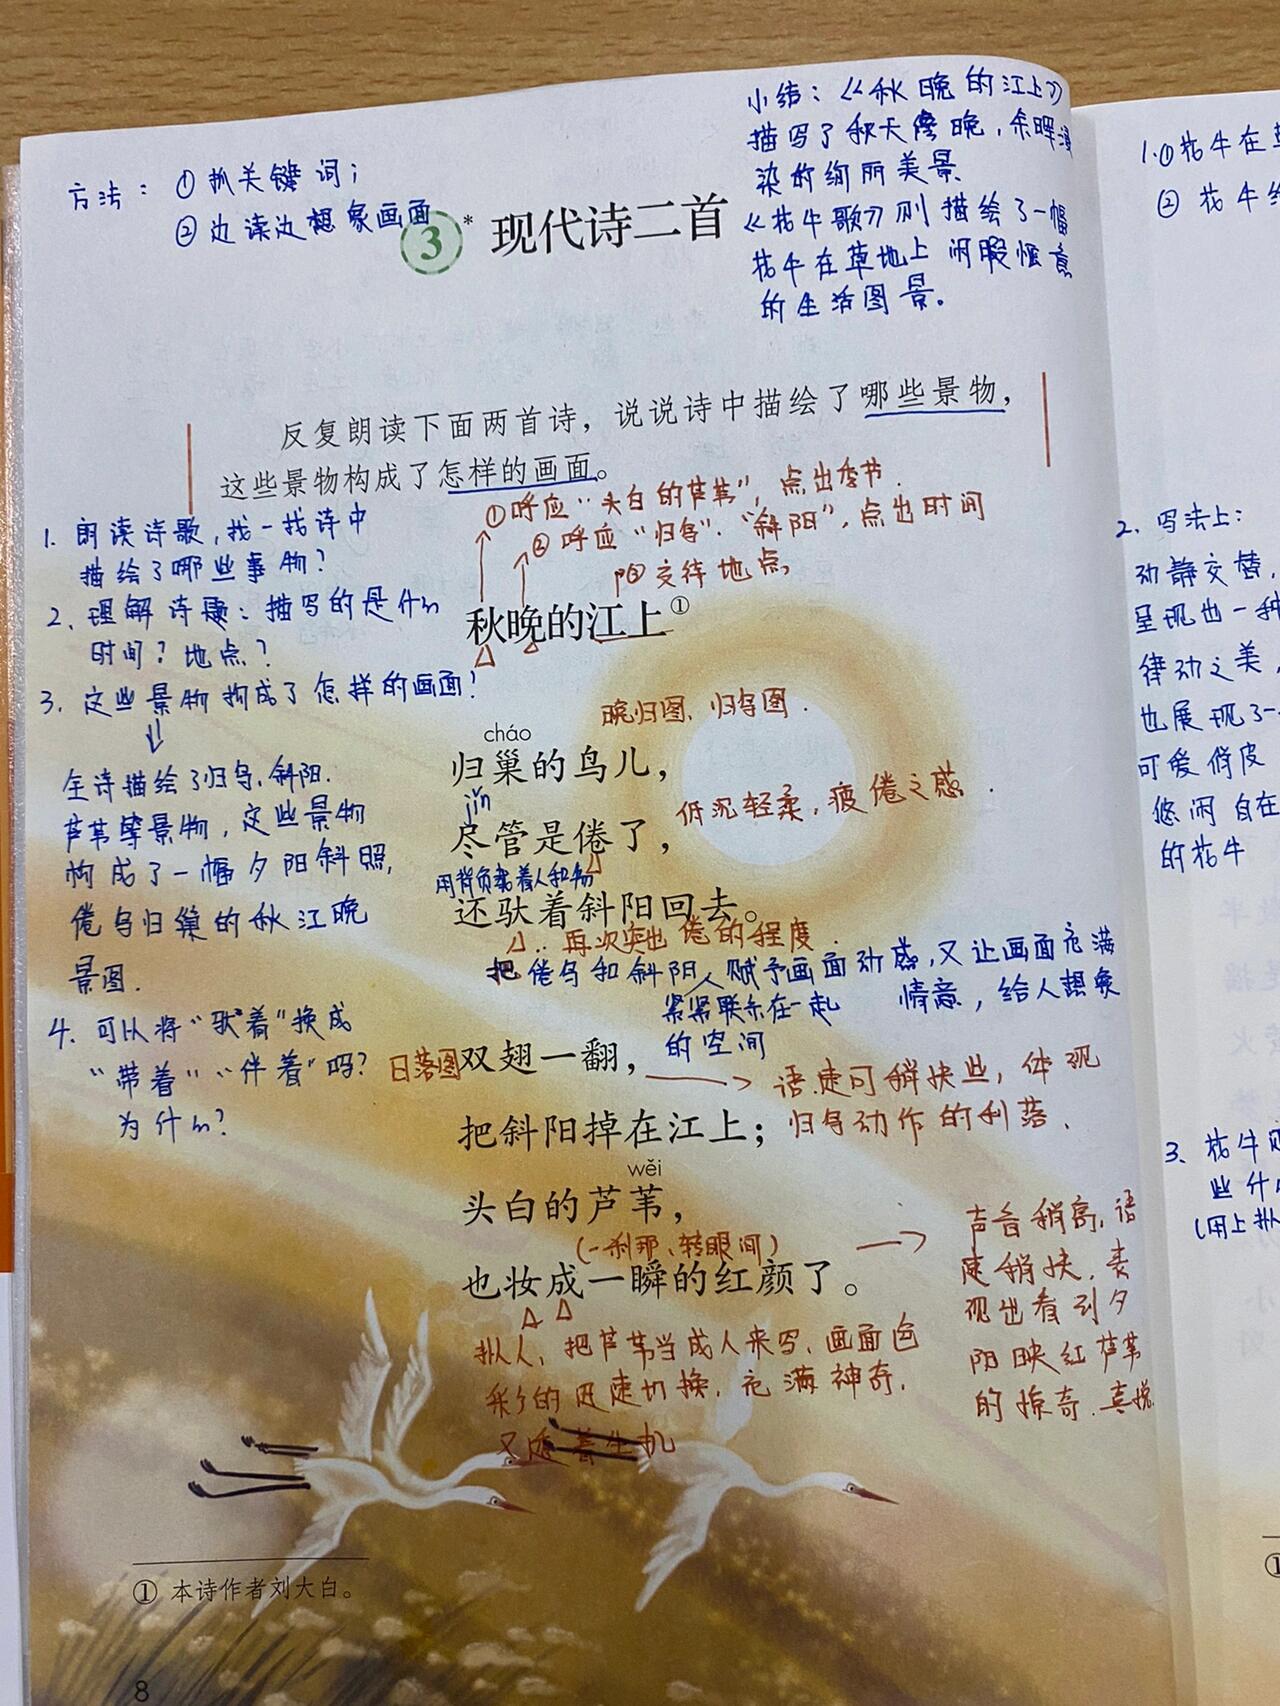 方法：①抓关键词；
②边读边想象画面
3* 现代诗二首
小结：《秋晚的江上》
描写了秋天傍晚，余晖浸
染的绚丽美景.
《花牛歌》则描绘了一幅
花牛在草地上闲暇惬意
的生活图景。
反复朗读下面两首诗，说说诗中描绘了哪些景物，
这些景物构成了怎样的画面。
①呼应“头白的芦苇”，点出季节.
②呼应“归鸟”.“斜阳”，点出时间
③交待地点
秋晚的江上①
1. 朗读诗歌，找一找诗中
描绘了哪些事物？
2、理解诗题：描写的是什么
时间？地点？
3. 这些景物构成了怎样的画面！
全诗描绘了归鸟、斜阳.
芦苇等景物，这些景物
构成了一幅夕阳斜照,
倦鸟归巢的秋江晚
景图.
4. 可以将“驮着”换成
“带着”“伴着”吗？
为什么？
晚归图、归鸟图.
cháo
归巢的鸟儿，
jǐn
尽管是倦了，
低沉轻柔，疲倦之感.
用背负载着人和物
还驮着斜阳回去。
再次突出倦的程度.
把倦鸟和斜阳人赋予画面动感，又让画面充满
紧紧联系在一起 情意，给人想象
的空间
日落图
双翅一翻，
语速可稍快些，体现
归鸟动作的利落.
把斜阳掉在江上；
wěi
头白的芦苇，
(一刹那、转眼间)
也妆成一瞬的红颜了。
声音稍高，语
速稍快，表
现出看到夕
阳映红芦苇
的惊奇.喜悦.
拟人，把芦苇当成人来写，画面色
彩的迅速切换，充满神奇，
又透着生机
① 本诗作者刘大白。
8
1.①花牛在
② 花牛
2. 写法上：
动静交替，
呈现出一种
律动之美，
也展现了一
可爱俏皮
悠闲自在
的花牛
3、花牛
些什
(用上
①